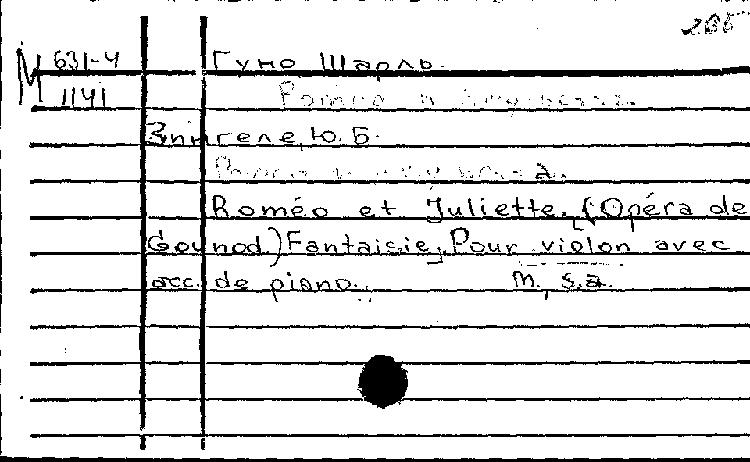 М 631-4 Гуно Шарль.
1141 Ромео и
Зингеле, Ю. Б.
Ромео и
Roméo et Juliette. (Opéra de
Gounod) Fantaisie. Pour violon avec
acc. de piano. M., s.a.